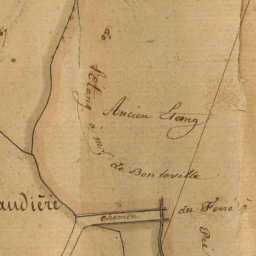 Ancien Etang
Etang à mr
de Bonteville
audiére
chemin
du Ferré à